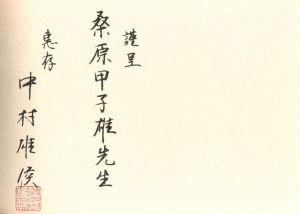 謹呈
桑原甲子雄先生
恵存
中村雄俟